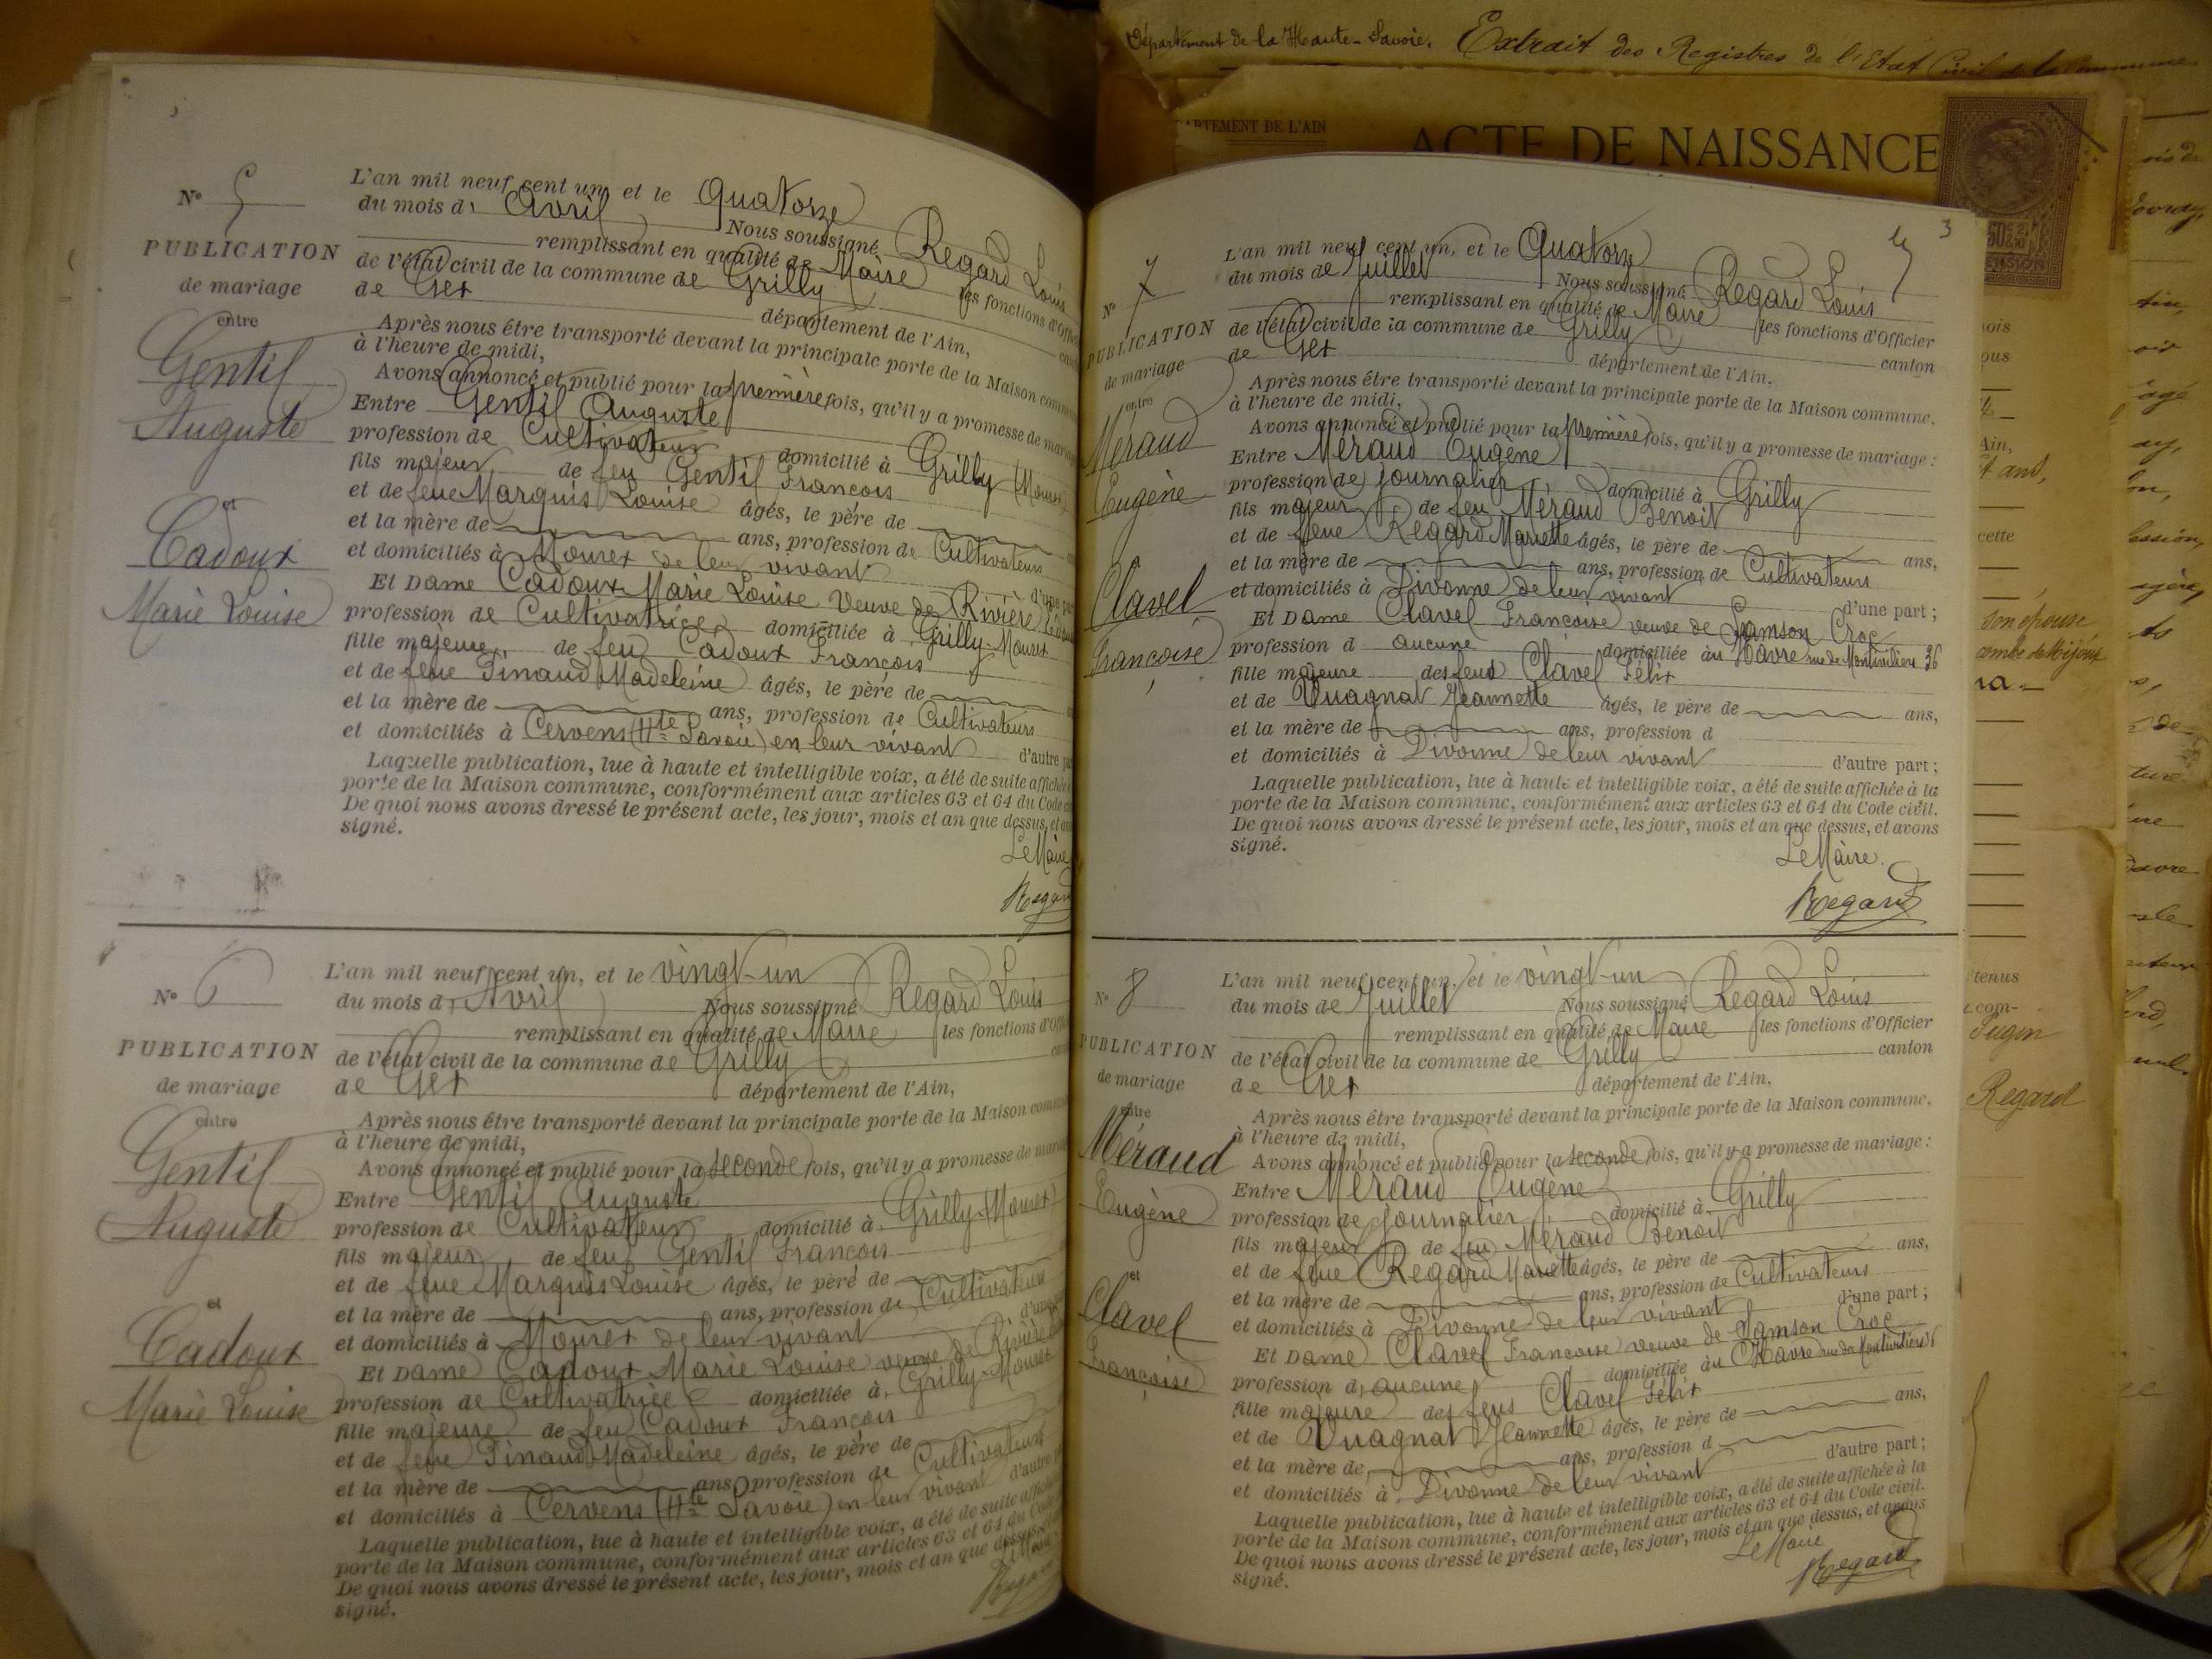 Département de la Haute-Savoie. Extrait des Registres de l'Etat Civil de la Commune
ARTEMENT DE L'AIN
ACTE DE NAISSANCE
N° 5
PUBLICATION
de mariage
entre
Gentil
Auguste
et
Cadoux
Marie Louise
L'an mil neuf cent un, et le Quatorze
du mois d' Avril Nous soussigné Regard Louis
remplissant en qualité de Maire les fonctions d'Offi
de l'état civil de la commune de Grilly
de Gex département de l'Ain,
Après nous être transporté devant la principale porte de la Maison comm
à l'heure de midi,
Avons annoncé et publié pour la première fois, qu'il y a promesse de maria
Entre Gentil Auguste
profession de Cultivateur domicilié à Grilly (Mourex)
fils majeur de feu Gentil François
et de feue Marquis Louise âgés, le père de
et la mère de ans, profession de Cultivateurs
et domiciliés à Mourex de leur vivant d'une par
Et Dame Cadoux Marie Louise Veuve de Rivière
profession de Cultivatrice domiciliée à Grilly-Mourex
fille majeure de feu Cadoux François
et de feue Pinaud Madeleine âgés, le père de
et la mère de ans, profession de Cultivateurs
et domiciliés à Cervens (Hte Savoie) en leur vivant d'autre
Laquelle publication, lue à haute et intelligible voix, a été de suite affichée
porte de la Maison commune, conformément aux articles 63 et 64 du Code
De quoi nous avons dressé le présent acte, les jour, mois et an que dessus, et
signé.
Le Maire
Regard
N° 6
PUBLICATION
de mariage
entre
Gentil
Auguste
et
Cadoux
Marie Louise
L'an mil neuf cent un, et le vingt-un
du mois d' Avril Nous soussigné Regard Louis
remplissant en qualité de Maire les fonctions d'Offi
de l'état civil de la commune de Grilly
de Gex département de l'Ain,
Après nous être transporté devant la principale porte de la Maison comm
à l'heure de midi,
Avons annoncé et publié pour la seconde fois, qu'il y a promesse de maria
Entre Gentil Auguste
profession de Cultivateur domicilié à Grilly-Mourex
fils majeur de feu Gentil François
et de feue Marquis Louise âgés, le père de
et la mère de ans, profession de Cultivateurs
et domiciliés à Mourex de leur vivant d'une
Et Dame Cadoux Marie Louise veuve de Rivière
profession de Cultivatrice domiciliée à Grilly-Mourex
fille majeure de feu Cadoux François
et de feue Pinaud Madeleine âgés, le père de
et la mère de ans, profession de Cultivateurs
et domiciliés à Cervens (Hte Savoie) en leur vivant d'autre
Laquelle publication, lue à haute et intelligible voix, a été de suite affichée
porte de la Maison commune, conformément aux articles 63 et 64 du Code
De quoi nous avons dressé le présent acte, les jour, mois et an que dessus
signé.
Le Maire
Regard
3
N° 7
PUBLICATION
de mariage
entre
Méraud
Eugène
et
Clavel
Françoise
L'an mil neuf cent un, et le Quatorze
du mois de Juillet Nous soussigné Regard Louis
remplissant en qualité de Maire les fonctions d'Officier
de l'état civil de la commune de Grilly canton
de Gex département de l'Ain.
Après nous être transporté devant la principale porte de la Maison commune.
à l'heure de midi,
Avons annoncé et publié pour la première fois, qu'il y a promesse de mariage :
Entre Méraud Eugène
profession de journalier domicilié à Grilly
fils majeur de feu Méraud Benoit
et de feue Regard Mariette âgés, le père de ans,
et la mère de ans, profession de Cultivateurs
et domiciliés à Divonne de leur vivant d'une part ;
Et Dame Clavel Françoise veuve de Samson Croc
profession d aucune domiciliée au Havre rue de Montivilliers 36
fille majeure des feus Clavel Félix
et de Vuagnat Jeannette âgés, le père de ans,
et la mère de ans, profession d
et domiciliés à Divonne de leur vivant d'autre part ;
Laquelle publication, lue à haute et intelligible voix, a été de suite affichée à la
porte de la Maison commune, conformément aux articles 63 et 64 du Code civil.
De quoi nous avons dressé le présent acte, les jour, mois et an que dessus, et avons
signé.
Le Maire.
Regard
N° 8
PUBLICATION
de mariage
entre
Méraud
Eugène
et
Clavel
Françoise
L'an mil neuf cent un, et le vingt-un
du mois de Juillet Nous soussigné Regard Louis
remplissant en qualité de Maire les fonctions d'Officier
de l'état civil de la commune de Grilly canton
de Gex département de l'Ain,
Après nous être transporté devant la principale porte de la Maison commune.
à l'heure de midi,
Avons annoncé et publié pour la seconde fois, qu'il y a promesse de mariage :
Entre Méraud Eugène
profession de journalier domicilié à Grilly
fils majeur de feu Méraud Benoit
et de feue Regard Mariette âgés, le père de ans,
et la mère de ans, profession de Cultivateurs
et domiciliés à Divonne de leur vivant d'une part ;
Et Dame Clavel Françoise veuve de Samson Croc
profession d aucune domiciliée au Havre rue de Montivilliers 36
fille majeure des feus Clavel Félix
et de Vuagnat Jeannette âgés, le père de ans,
et la mère de ans, profession d
et domiciliés à Divonne de leur vivant d'autre part ;
Laquelle publication, lue à haute et intelligible voix, a été de suite affichée à la
porte de la Maison commune, conformément aux articles 63 et 64 du Code civil.
De quoi nous avons dressé le présent acte, les jour, mois et an que dessus, et avons
signé.
Le Maire
Regard
Ain,
cette
son épouse
tenus
com-
Regard